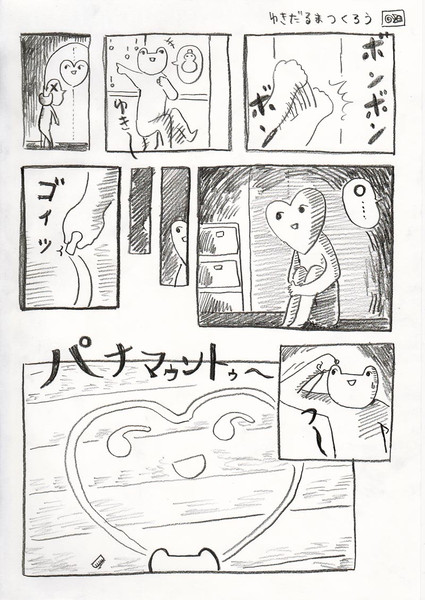 ゆきだるまつくろう
ボンボン
ボン
ゆきー
……
ゴイッ
パナマゥントゥ〜